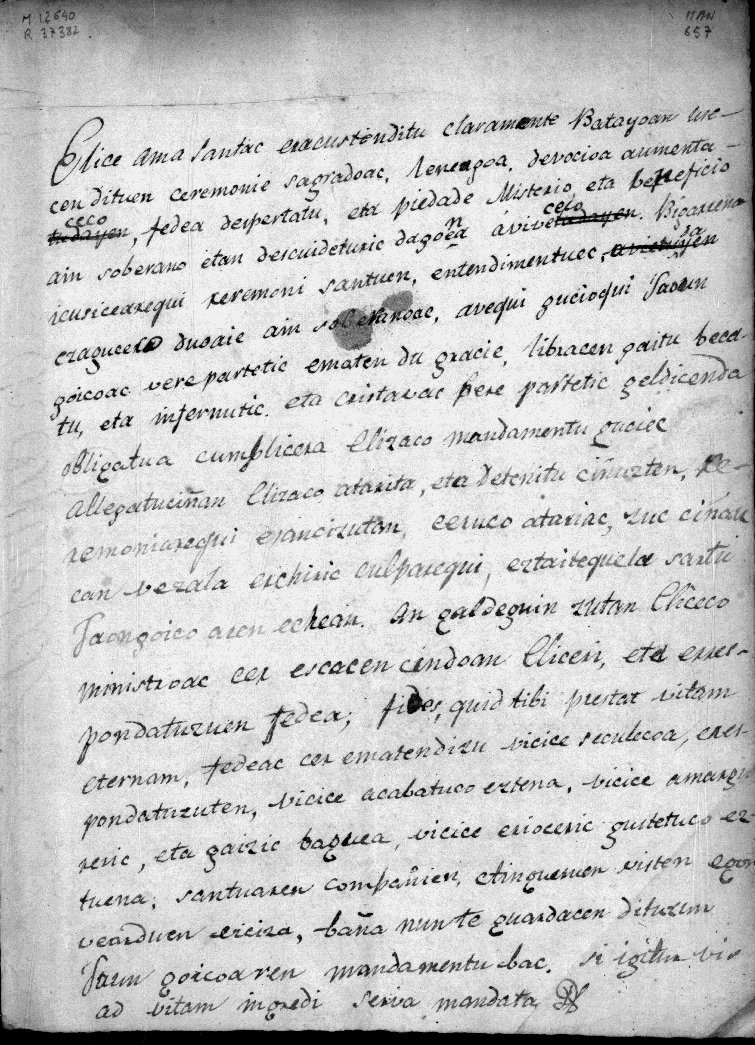 M 12640
R 37382
MAN
657
Elice ama santac eracustenditu claramente Batayoan use-
cen dituen ceremonie sagradoac, lenengoa, devocioa aumenta-
ceco
tudayen, fedea despertatu, eta piedade Misterio, eta beneficio
ain soberano etan descuideturic dagoen avivetadayen. Bigarrena
n ceco
icusicearequi ceremoni santuen, entendimentuec,
sa
ezagucera duoaie ain soberanoac, arequi gucioqui Jaun
goicoac vere partetic ematen du gracie, libracen gaitu beca-
tu, eta infernutic. eta cristavac bere partetic geldicenda
obligatua cumplicera Elizaco mandamentu guciec
Allegatuciñan Elizaco atarira, eta detenitu ciñuzten, ze-
remoniarequi erancizutan, ceruco atariac, zuc ciñau
can vezala erchiric culparequi, eztaitequela sartu
Jaongoico aren echean. An galdeguin zutan Eliceco
ministroac cer escacen cindoan Eliceri, eta erres-
pondatuzuen fedea; fides, quid tibi prestat vitam
eternam, fedeac cer ematendizu vicice seculecoa, erres-
pondatuzuten, vicice acabatuco eztena, vicice amargu
reric, eta gaizic baguea, vicice erioceric gustetuco ez-
tuena; santuaren compañien, Aingueruen visten egon
vearduen viciza, baña nunte guardacen dituzun
Jaun goicoaren mandamentu bac. si igitur vis
ad vitam ingredi serva mandata